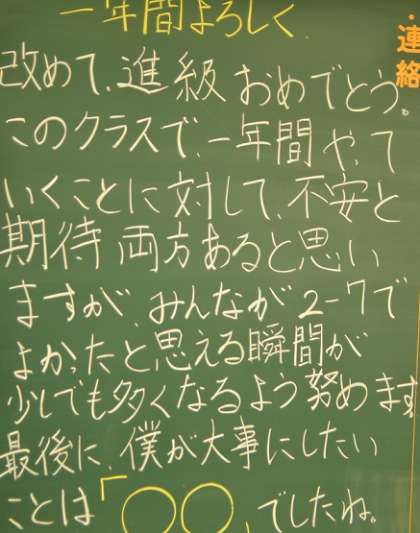 一年間よろしく
連絡
改めて、進級おめでとう。
このクラスで、一年間やって
いくことに対して、不安と
期待両方あると思い
ますが、みんなが2-7で
よかったと思える瞬間が
少しでも多くなるよう努めます
最後に、僕が大事にしたい
ことは「〇〇」でしたね。